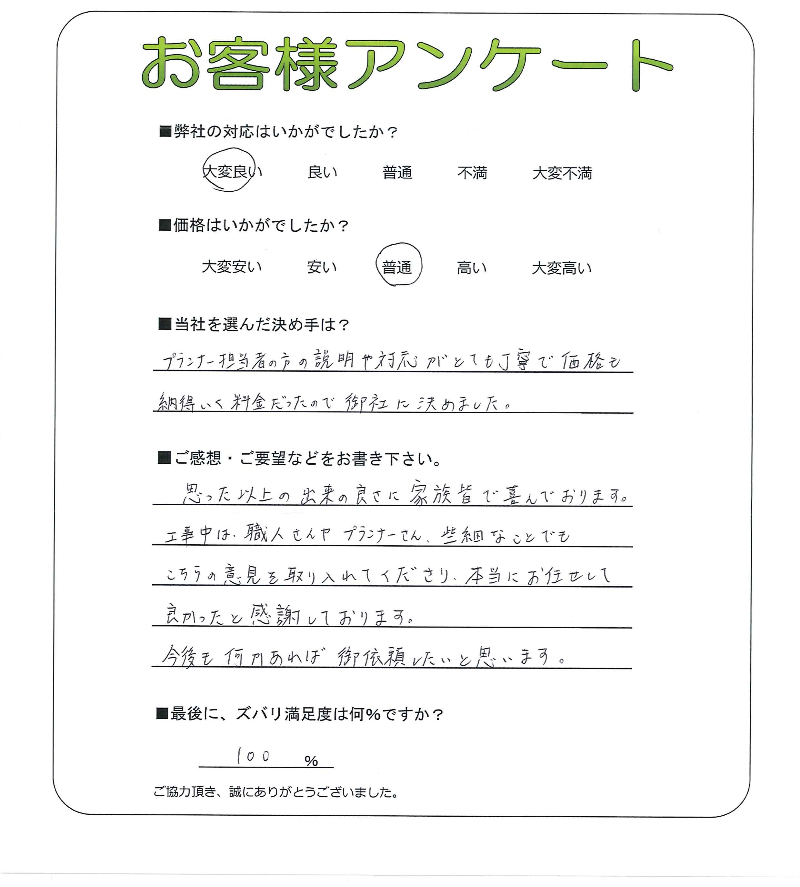 お客様アンケート
■弊社の対応はいかがでしたか?
大変良い 良い 普通 不満 大変不満
■価格はいかがでしたか?
大変安い 安い 普通 高い 大変高い
■当社を選んだ決め手は?
プランナー担当者の方の説明や対応がとても丁寧で価格も
納得いく料金だったので御社に決めました。
■ご感想・ご要望などをお書き下さい。
思った以上の出来の良さに家族皆で喜んでおります。
工事中は、職人さんやプランナーさん、些細なことでも
こちらの意見を取り入れてくださり、本当にお任せして
良かったと感謝しております。
今後も何かあれば御依頼したいと思います。
■最後に、ズバリ満足度は何%ですか?
100 %
ご協力頂き、誠にありがとうございました。